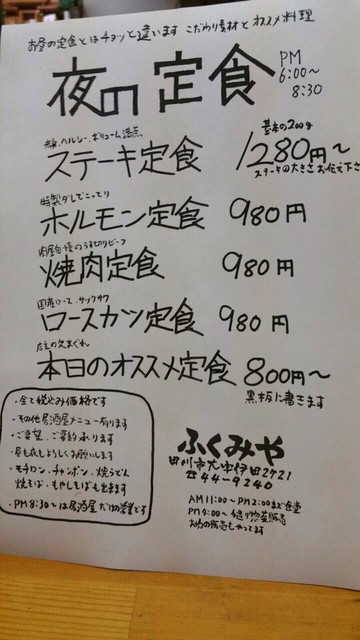 お昼の定食とはチョッと違います こだわり素材とオススメ料理
夜の定食
PM
6:00〜
8:30
ヘルシー、ボリューム満点
ステーキ定食
基本の200g
1280円〜
ステーキの大きさお伝え下さ
特製ダレでこってり
ホルモン定食 980円
うす切りビーフ
焼肉定食 980円
国産ロース サックサク
ロースカツ定食 980円
店主の気まぐれ
本日のオススメ定食 800円〜
黒板に書きます
・全て税込み価格です
・その他居酒屋メニュー有ります
・ご要望、ご予約承ります
・昼も夜もよろしくお願いします
・モチロン、チャンポン、焼うどん
焼そば、もやしそばも出ます
・PM8:30〜は居酒屋だけの営業です
ふくみや
田川市大字伊田2721
☎44-9240
AM11:00〜PM2:00まで食堂
PM4:00〜手造り惣菜販売
お肉の販売もやってます